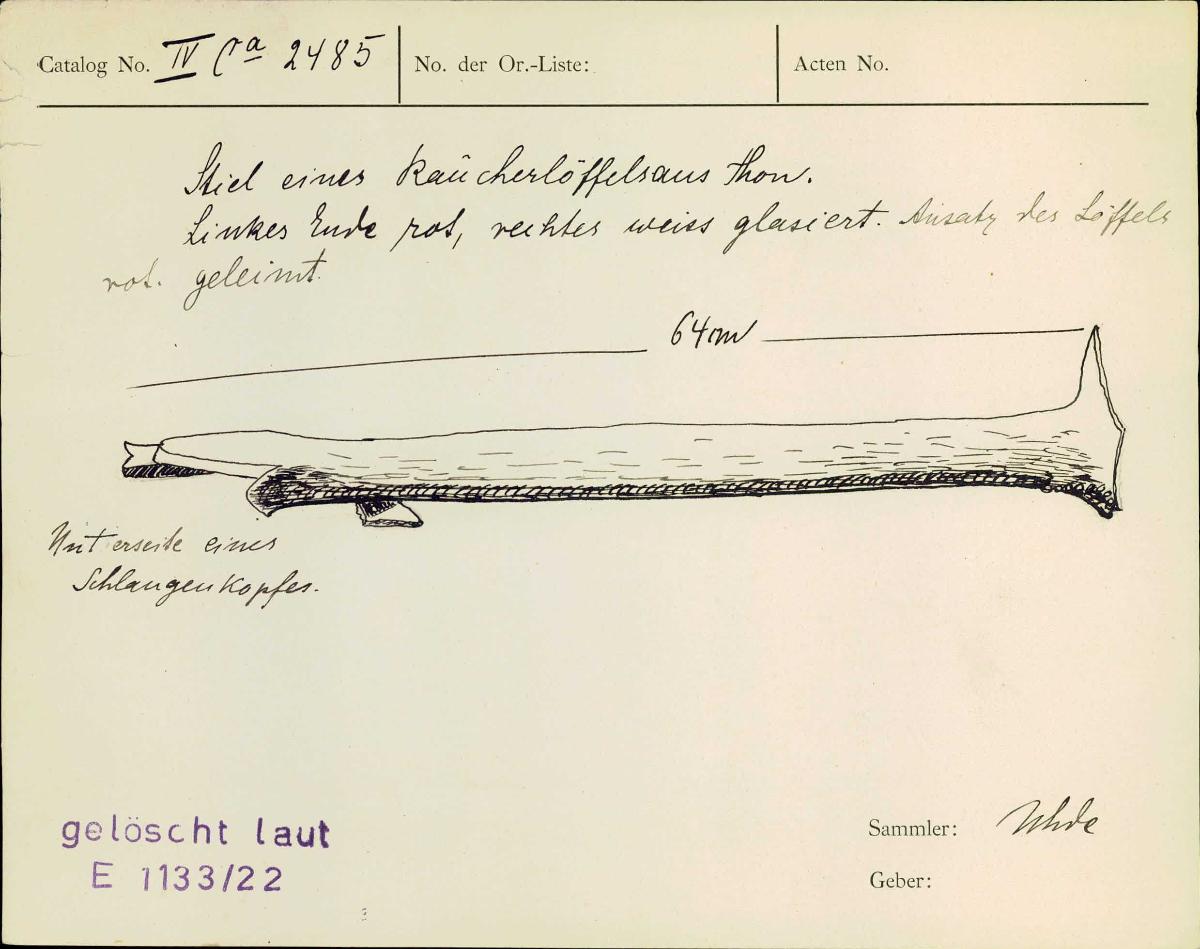 Catalog No. IV Ca 2485 No. der Or.-Liste: Acten No.
Stiel eines Räucherlöffels aus Thon.
Linkes Ende rot, rechtes weiss glasiert. Ansatz des Löffels
rot. geleimt.
64 cm
Unterseite eines
Schlangenkopfes.
gelöscht laut
E 1133/22
Sammler: Uhde
Geber: